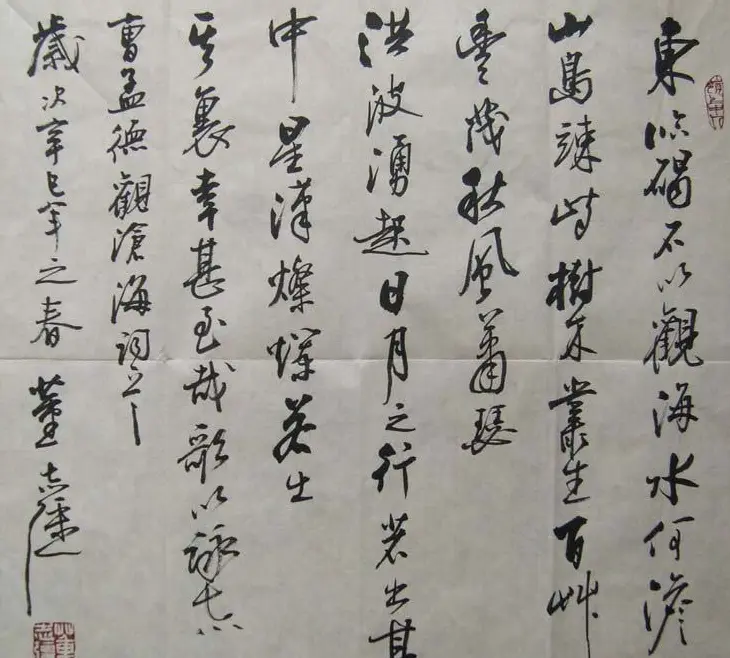 東臨碣石以觀海水何澹
山島竦峙樹木叢生百艸
豐茂秋風蕭瑟
洪波湧起日月之行若出其
中星漢燦爛若出
其裏幸甚至哉歌以詠志
曹孟德觀滄海詞
歲次辛巳年之春 董志